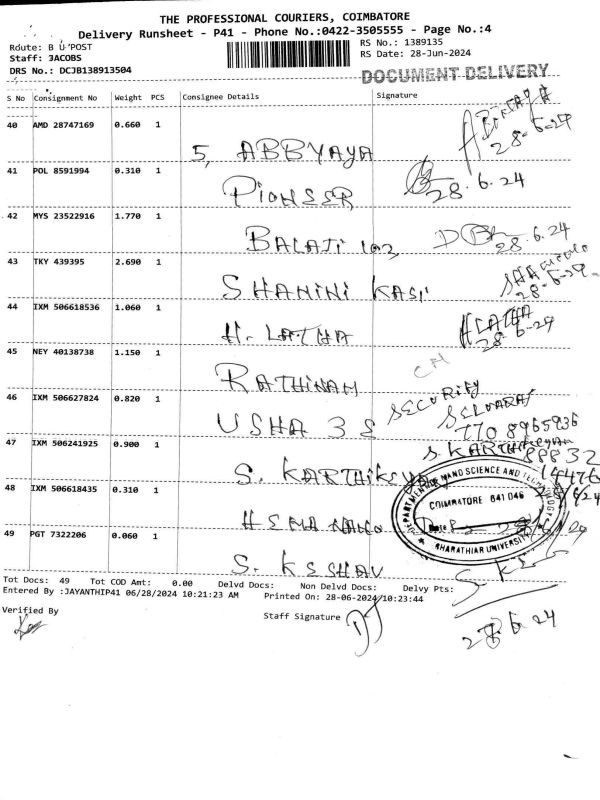 THE PROFESSIONAL COURIERS, COIMBATORE
Delivery Runsheet - P41 - Phone No.:0422-3505555 - Page No.:4
Route: B U POST
RS No.: 1389135
Staff: JACOBS
RS Date: 28-Jun-2024
DRS No.: DCJB138913504
DOCUMENT DELIVERY
S No Consignment No Weight PCS Consignee Details Signature
40 AMD 28747169 0.660 1
5, ABBYAYA 28-6-24
41 POL 8591994 0.310 1
PIONSSR 28.6.24
42 MYS 23522916 1.770 1
BALAJI 103 28.6.24
43 TKY 439395 2.690 1
SHANINI KASI 28-6-24
44 IXM 506618536 1.060 1
H. LATHA H LATHA 28-6-24
45 NEY 40138738 1.150 1
RATHINAM
46 IXM 506627824 0.820 1
USHA 3 S SECURITY SELVARAJ
770 8965936
47 IXM 506241925 0.900 1
S. KARTHIKSYA S. KARTHIKeyan
88832
14476
48 IXM 506618435 0.310 1
DEPARTMENT OF NANO SCIENCE AND TECHNOLOGY
COIMBATORE 641 046
Date
BHARATHIAR UNIVERSITY
49 PGT 7322206 0.060 1
S. KSSHAV
Tot Docs: 49 Tot COD Amt: 0.00 Delvd Docs: Non Delvd Docs: Delvy Pts:
Entered By :JAYANTHIP41 06/28/2024 10:21:23 AM Printed On: 28-06-2024/10:23:44
Verified By Staff Signature
28-6-24